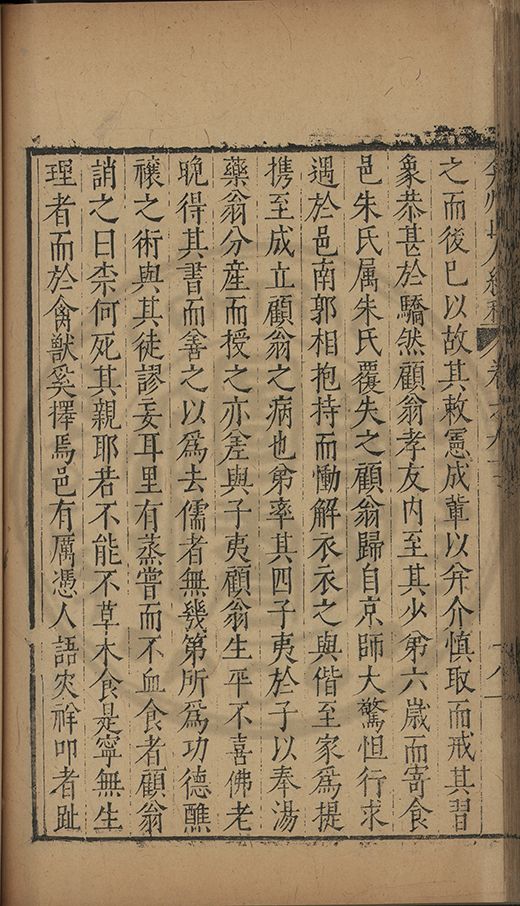 弇州山人續稿 卷六九
之而後已以故其敕憲成輩以弁介慎取而戒其習
象恭甚於驕然顧翁孝友内至其少弟六歲而寄食
邑朱氏属朱氏覆失之顧翁歸自京師大驚怛行求
遇於邑南郭相抱持而慟解衣衣之與偕至家爲提
携至成立顧翁之病也弟率其四子夷於子以奉湯
藥翁分産而授之亦差與子夷顧翁生平不喜佛老
晚得其書而善之以爲去儒者無幾第所爲功德醮
禳之術與其徒謬妄耳里有蒸嘗而不血食者顧翁
誚之曰柰何死其親耶若不能不草木食是寧無生
理者而於禽獸奚擇焉邑有厲憑人語灾祥叩者趾